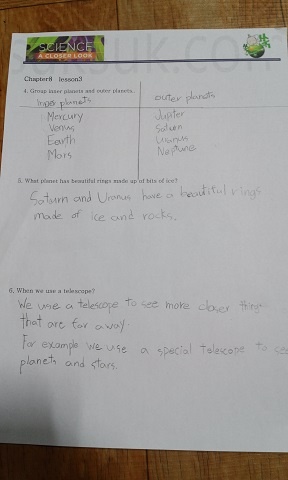 SCIENCE
A CLOSER LOOK
Chapter8 lesson3
4. Group inner planets and outer planets.
Inner planets outer planets
Mercury Jupiter
Venus Saturn
Earth Uranus
Mars Neptune
5. What planet has beautiful rings made up of bits of ice?
Saturn and Uranus have a beautiful rings
made of ice and rocks.
6. When we use a telescope?
We use a telescope to see more closer things
that are far away.
For example we use a special telescope to see
planets and stars.